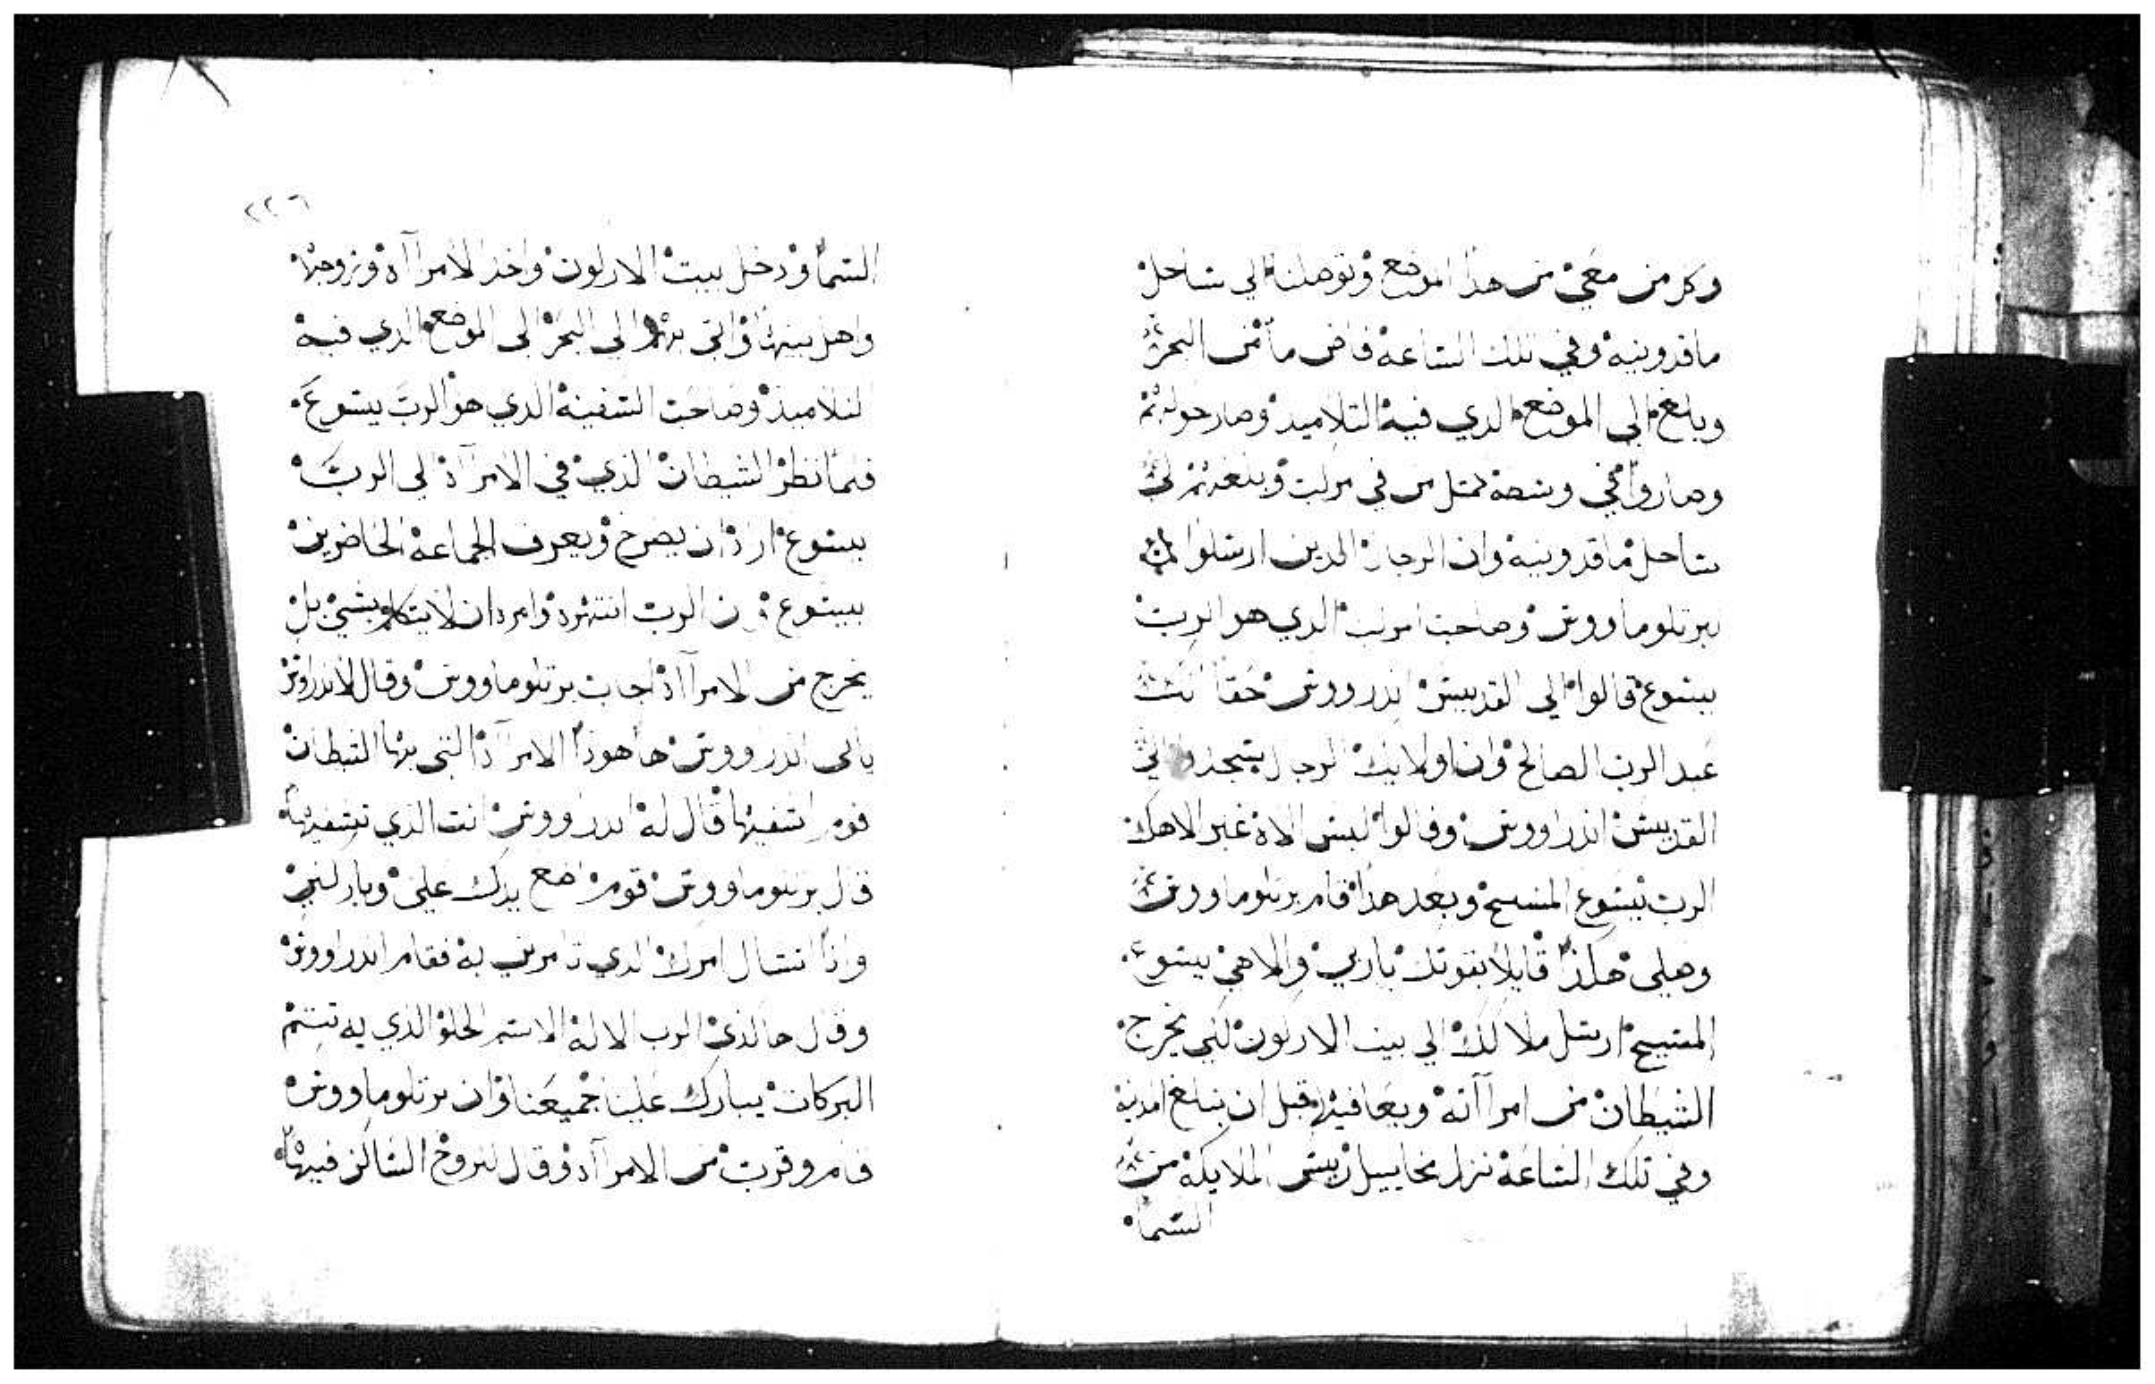 وكل من معي من هذا الموضع وتوصلنا الي ساحل
ماقدونيه وفي تلك الساعة فاض ما من البحر
وبلغ الي الموضع الدي فيه التلاميد وصار حولهم
وصاروا في وسطه كمثل من في مركب وبلغهم الي
ساحل ماقدونيه وان الرجال الدين ارسلوا
برتلوماووس وصاحب المركب الدي هو الرب
يسوع قالوا الي القديس اندرووس حقا انت
عبد الرب الصالح وان اولايك الرجال سجدوا الي
القديس اندراووس وقالوا ليس الاه غير الاهك
الرب يسوع المسيح وبعد هدا قام برتلوماووس
وصلي هكذا قايلا بقوتك ياربي والاهي يسوع
المسيح ارسل ملاكك الي بيت الاركون لكي يخرج
الشيطان من امراآته ويعافيها قبل ان يبلغ المدينة
وفي تلك الساعة نزل مخاييل رييس الملايكة من
السما
٢٢٦
السما ودخل بيت الاركون واخد الامراآه وزوجها
واهل بيتها واتى بهم الى البحر الى الموضع الدي فيه
التلاميذ وصاحب السفينة الدي هو الرب يسوع
فلما نظر الشيطان الذي في الامرآة الي الرب
يسوع اراد ان يصرخ ويعرف الجماعة الحاضرين
بيسوع وان الرب انتهره وامره ان لا يتكلم بشي بل
يخرج من الامراآة اجاب برتلوماووس وقال لاندراوس
يا ابى اندرووس ها هودا الامرآة التى بها الشيطان
قوم اشفيها قال له اندراووس انت الذي تشفيها
قال برتلوماووس قوم اضع يدك علي وباركني
وانا انسال امرك الدي تامرني به فقام اندراووس
وقال هاكذي الرب الالة الاسم الحلو الذي به تتم
البركات يبارك علينا جميعنا وان برتلوماووس
قام وقرب من الامرآة وقال للروح الساكن فيها